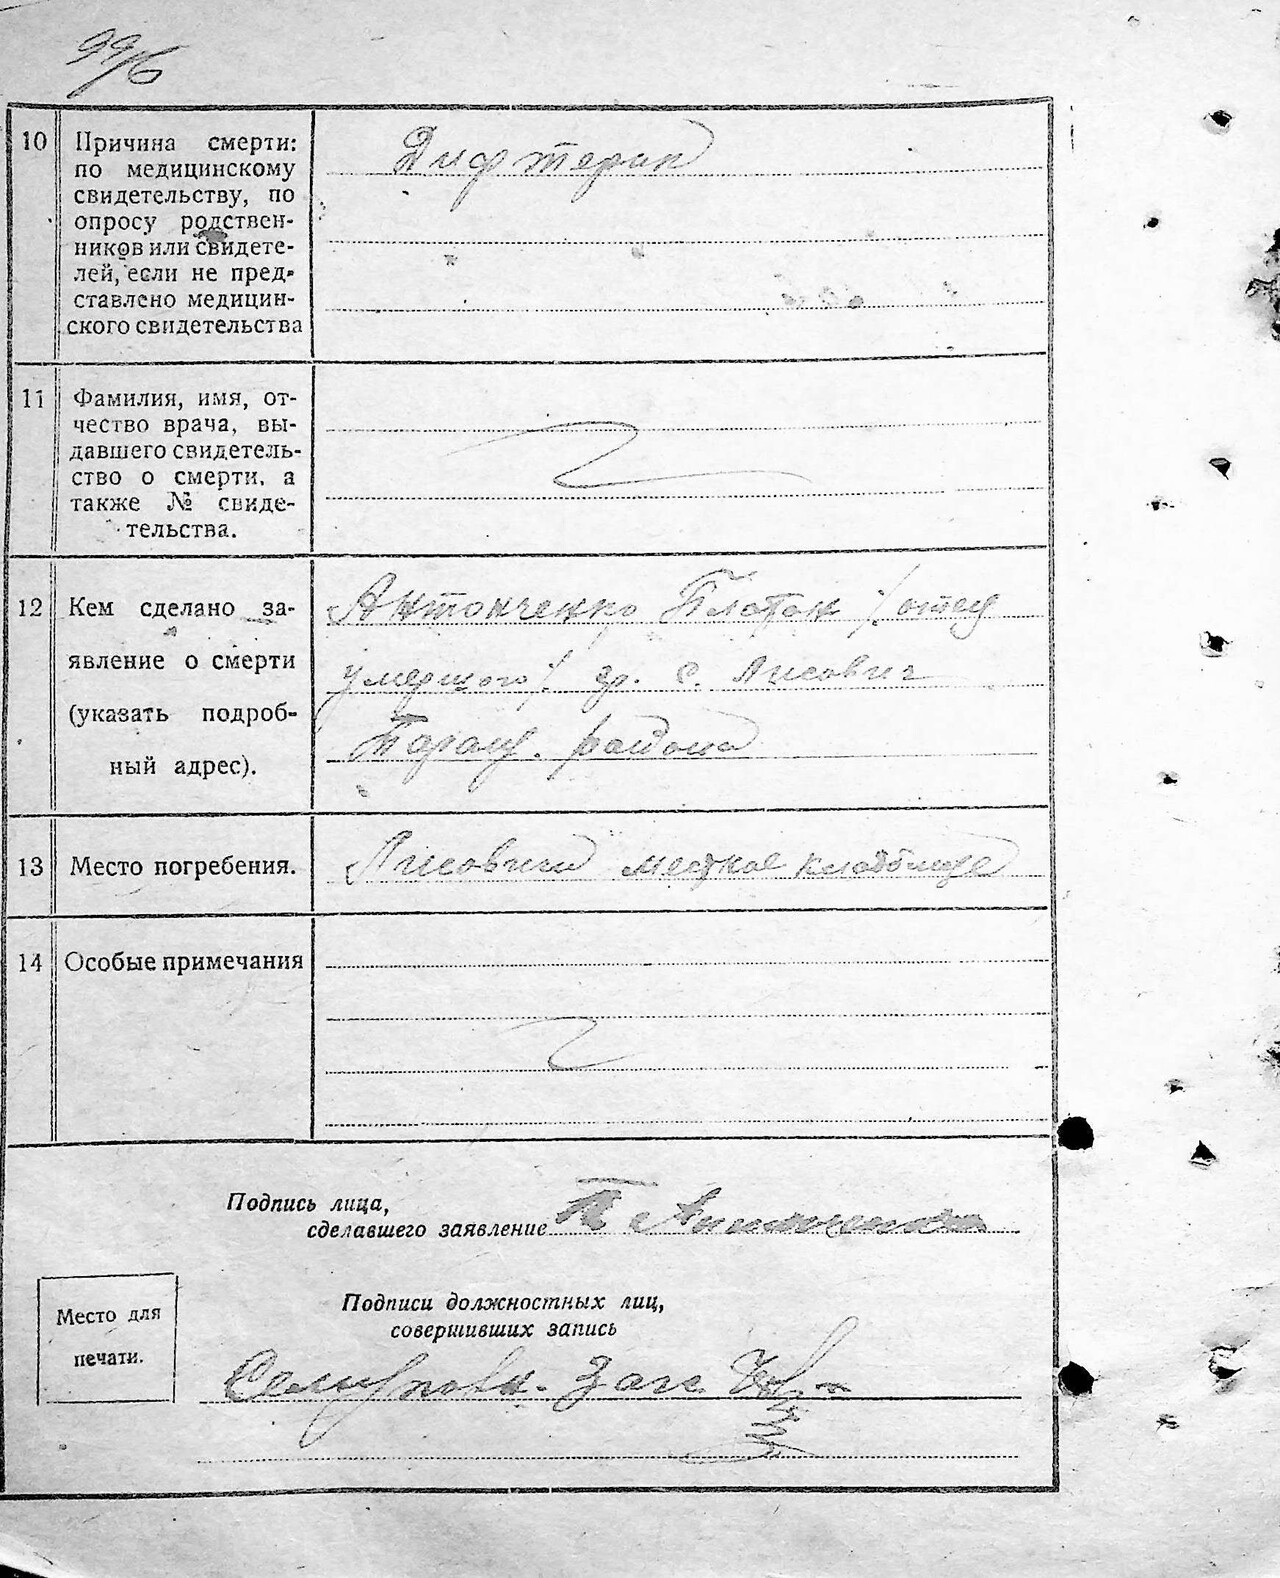 99/б
10
Причина смерти:
по медицинскому
свидетельству, по
опросу родствен-
ников или свидете-
лей, если не пред-
ставлено медицин-
ского свидетельства
Дифтерия
11
Фамилия, имя, от-
чество врача, вы-
давшего свидетель-
ство о смерти, а
также № свиде-
тельства.
12
Кем сделано за-
явление о смерти
(указать подроб-
ный адрес).
Антонченко Платон /отец
умершого/. гр. с. Лисович
Таращ. района
13
Место погребения.
Лисовичи местное кладбище
14
Особые примечания
Подпись лица,
сделавшего заявление
П Антонченко
Подписи должностных лиц,
совершивших запись
Место для
печати.
Заг.